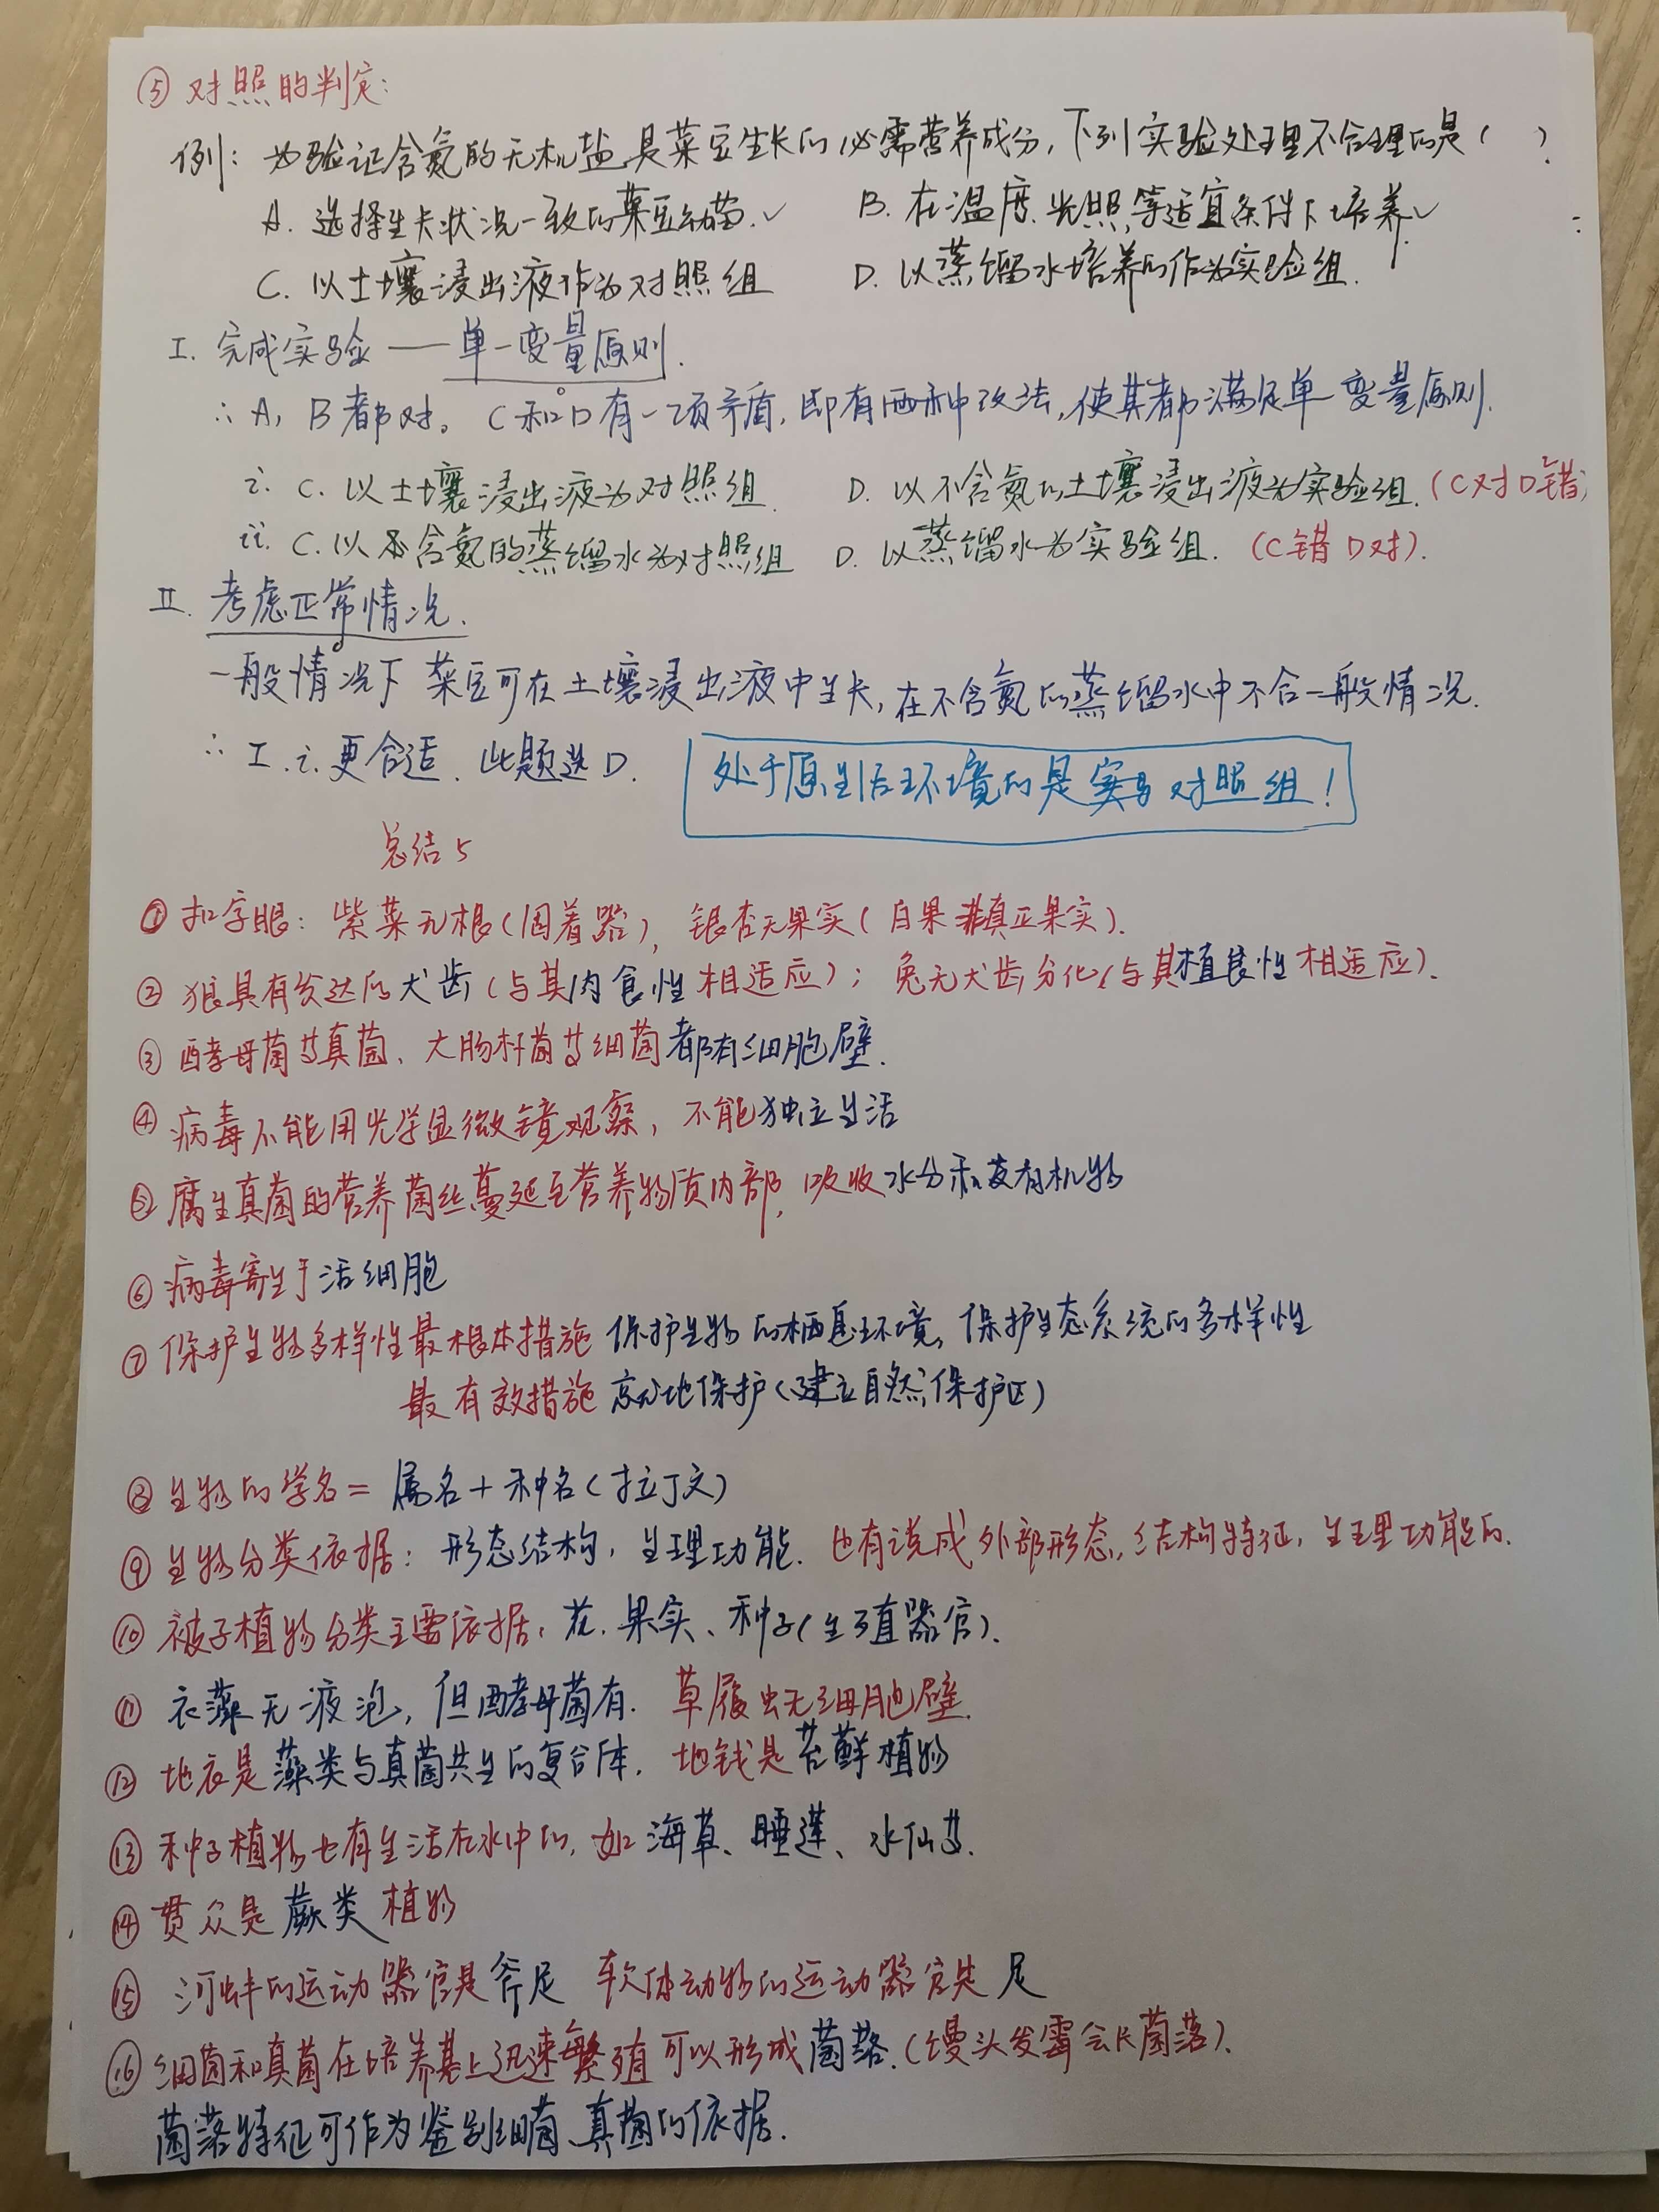 ⑤ 对照的判定:
例: 为验证含氮的无机盐是菜豆生长的必需营养成分,下列实验处理不合理的是( ).
A. 选择生长状况一致的菜豆幼苗.✓ B. 在温度、光照等适宜条件下培养✓.
C. 以土壤浸出液作为对照组 D. 以蒸馏水培养的作为实验组.
I. 完成实验——单一变量原则.
∴ A, B都对。C和D有一项矛盾,即有两种改法,使其都满足单一变量原则.
i. C. 以土壤浸出液为对照组. D. 以不含氮的土壤浸出液为实验组.(C对D错)
ii. C. 以不含氮的蒸馏水为对照组 D. 以蒸馏水为实验组. (C错D对).
II. 考虑正常情况.
一般情况下菜豆可在土壤浸出液中生长,在不含氮的蒸馏水中不合一般情况.
∴ I. i. 更合适. 此题选D.
处于原生活环境的是对照组!
总结5
① 扣字眼: 紫菜无根(固着器), 银杏无果实(白果非真正果实).
② 狼具有发达的犬齿(与其肉食性相适应); 兔无犬齿分化(与其植食性相适应).
③ 酵母菌等真菌、大肠杆菌等细菌都有细胞壁.
④ 病毒不能用光学显微镜观察, 不能独立生活
⑤ 腐生真菌的营养菌丝蔓延至营养物质内部, 吸收水分和有机物
⑥ 病毒寄生于活细胞
⑦ 保护生物多样性最根本措施 保护生物的栖息环境, 保护生态系统的多样性
最有效措施 就地保护(建立自然保护区)
⑧ 生物的学名= 属名+种名(拉丁文)
⑨ 生物分类依据: 形态结构, 生理功能. 也有说成外部形态, 结构特征, 生理功能的.
⑩ 被子植物分类主要依据: 花、果实、种子(生殖器官).
⑪ 衣藻无液泡, 但酵母菌有. 草履虫无细胞壁.
⑫ 地衣是藻类与真菌共生的复合体. 地钱是苔藓植物
⑬ 种子植物也有生活在水中的, 如海草、睡莲、水仙等.
⑭ 贯众是蕨类植物
⑮ 河蚌的运动器官是斧足 软体动物的运动器官是足
⑯ 细菌和真菌在培养基上迅速繁殖可以形成菌落.(馒头发霉会长菌落).
菌落特征可作为鉴别细菌、真菌的依据.